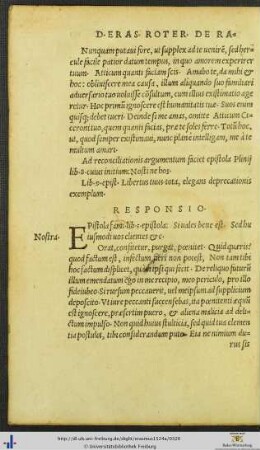 D· ERAS· ROTER· DE RA·
Nunquam putaui fore, ut supplex ad te uenirē, sed hercule
facile patior datum tempus, in quo amorem experirer
tuum· Atticum quanti faciam scis· Amabo te, da mihi &
hoc: obliuiscere mea causa, illum aliquando suo familiari
aduersario tuo uoluisse cōsultum, cum illius existimatio ageretur·
Hoc primū ignoscere est humanitatis tuæ· Suos enim
quisq; debet tueri· Deinde si me amas, omitte Atticum Ciceroni
tuo, quem quanti facias, præ te soles ferre· Totū hoc,
ut, quod semper existimaui, nunc plane intelligam, me à te
multum amari·
Ad reconciliationis argumentum faciet epistola Plinij
lib·2·cuius initium: Nosti ne hos·
Lib·9·epist· Libertus tuus tuta, elegans deprecationis
exemplum·
RESPONSIO·
Nostra·
EPistolæ fami·lib·1·epistola: Studes bene est· Sed huiusmodi
uos clientes &c·
Orat, conijcitur, purget, pœnitet· Quid quæris?
quod factum est, infectum fieri non potest, Non tam tibi
hoc factum displicet, quàm ipsi qui fecit· De reliquo futurū
illum emendatum ego in me recipio, meo periculo, pro illo
fideiubeo· Si rursum peccauerit, uel meipsum ad supplicium
deposcito· Vt iure peccanti succensebas, ita pœnitenti æquū
est ignoscere, præsertim puero, & aliena malitia ad delictum
impulso· Non quod huius stultitia, sed quid tua clementia
postulet, tibi considerandum puto· Et a ne nimium du
rus sis
http://dl.ub.uni-freiburg.de/diglit/erasmus1524a/0020
© Universitätsbibliothek Freiburg
Baden-Württemberg